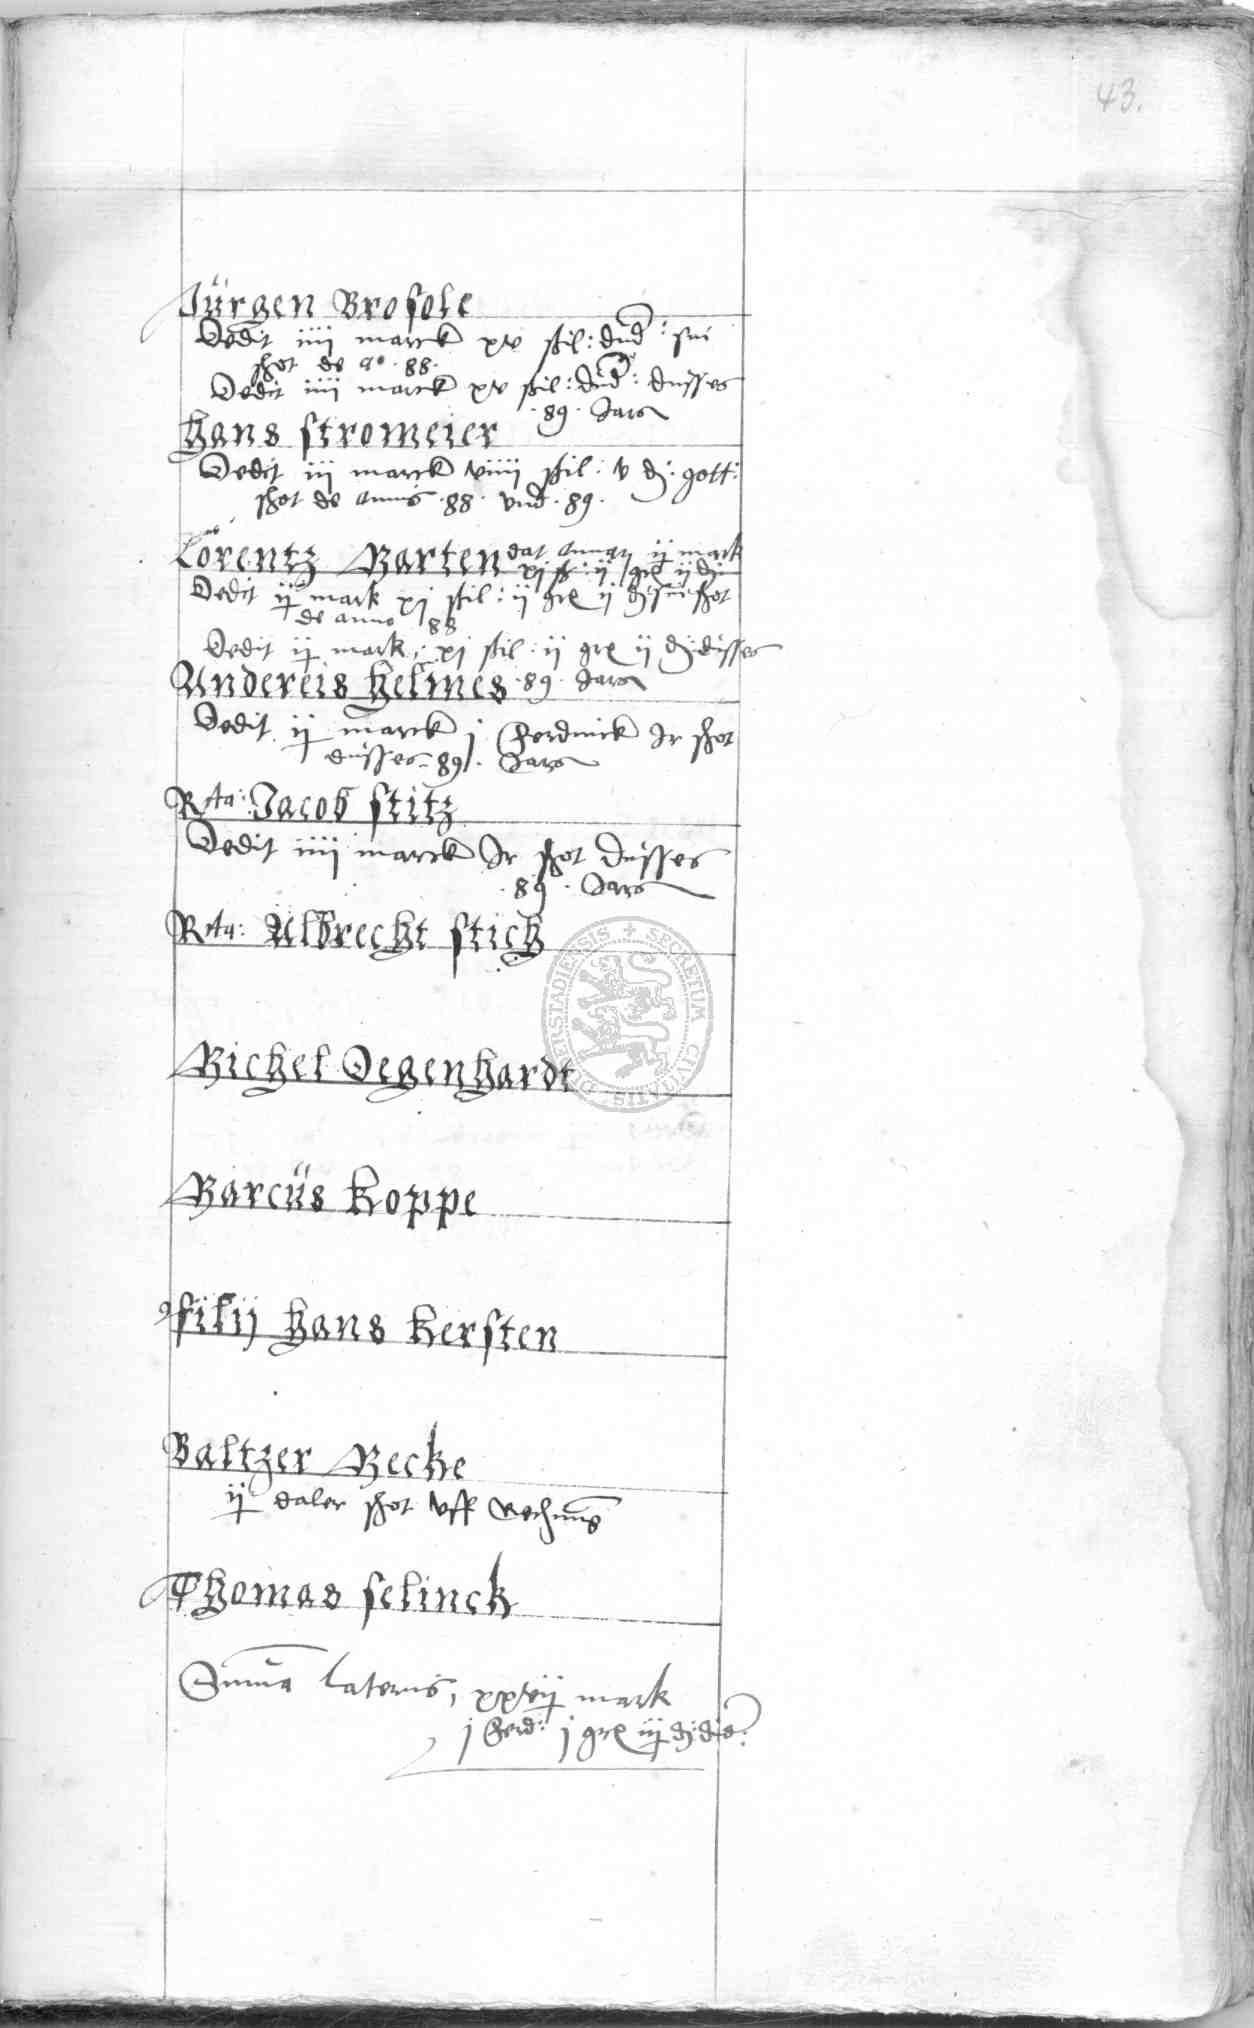 43.
Jürgen Brosole
Dedit iiii marck xv ßil: dnd: sui
shot de ao. 88.
Dedit iiii marck xv ßil: dnd: dusses
.89. Jars
Hans stromeier
Dedit iii marck viiii ßil: v d: gott:
shot de annis .88. vnd .89.
Lorentz Marten dat ij mark
xj ß: ij grs ij d:
Dedit ij mark xj ßil: ij grs ij d sui shot
de anno 88
Dedit ij mark, xj ßil: ij grs ij d: dusses
Andereis Helmes .89. Jars
Dedit ij marck j ferdinck Jr shot
dusses .89. Jars
Rta: Jacob stitz
Dedit iiii marck Jr shot dusses
.89. Jars
Rta: Albrecht stich
Michel Degenhardt
Marcüs Koppe
filij Hans Kersten
Baltzer Mecke
ij daler shot vff Rechnung
Thomas selinck
Suma lateris, xxvij mark
j ferd: j grs iij d:
SECRETUM CIVITATIS DUDERSTADIENSIS